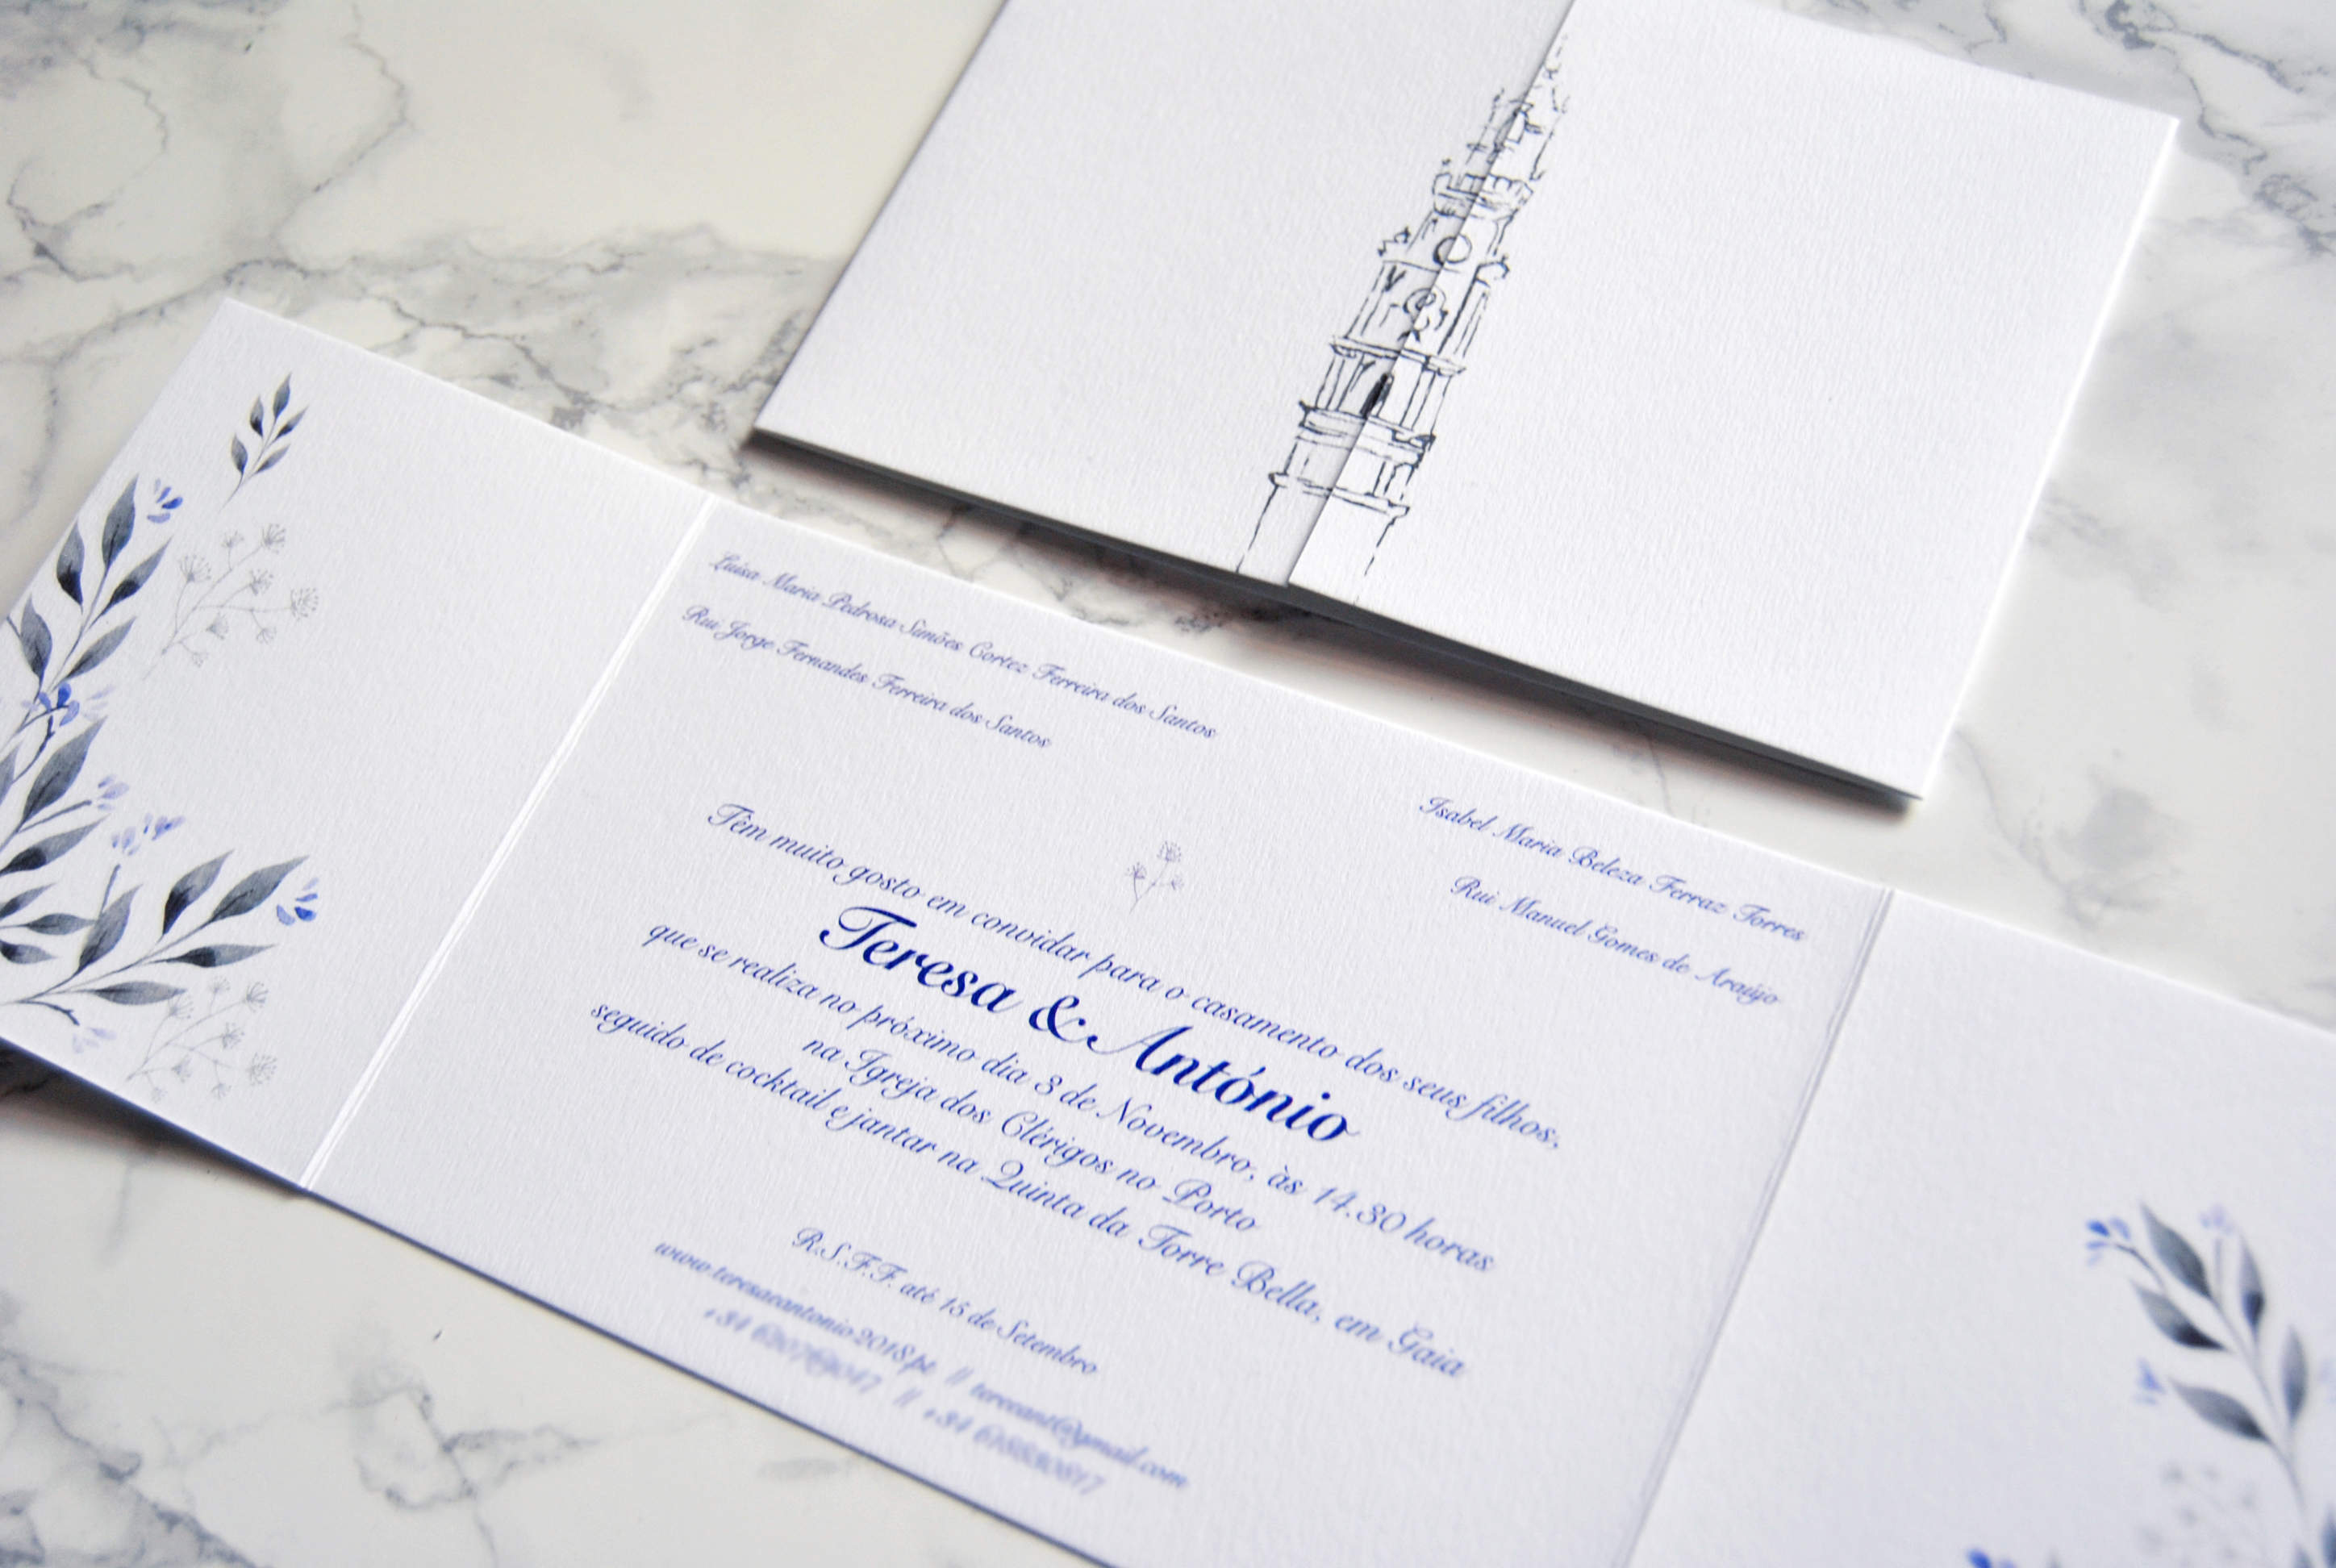 Luisa Maria Pedrosa Simões Cortez Ferreira dos Santos
Rui Jorge Fernandes Ferreira dos Santos
Isabel Maria Beleza Ferraz Torres
Rui Manuel Gomes de Araújo
Têm muito gosto em convidar para o casamento dos seus filhos,
Teresa & António
que se realiza no próximo dia 3 de Novembro, às 14.30 horas
na Igreja dos Clérigos no Porto
seguido de cocktail e jantar na Quinta da Torre Bella, em Gaia
R.S.F.F. até 15 de Setembro
www.teresaeantonio2018.pt || tereeant@gmail.com
+34 || +34